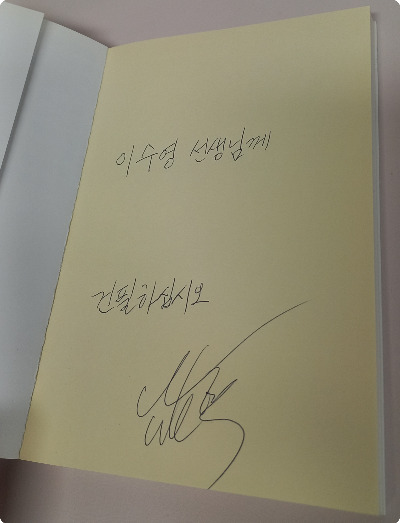 이수영 선생님께
건필하십시오